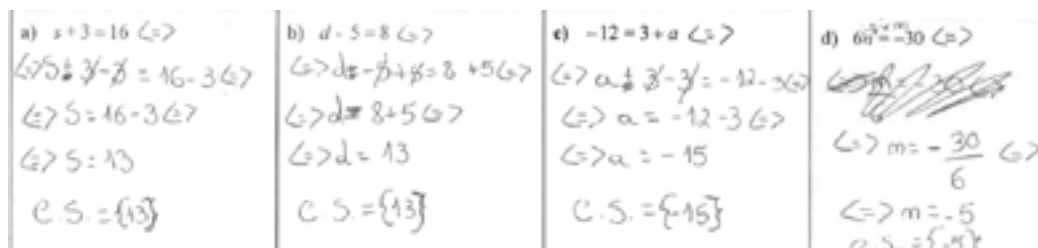 a) s + 3 = 16 <=>
<=> S + 3 - 3 = 16 - 3 <=>
<=> S = 16 - 3 <=>
<=> S = 13
C.S. = {13}
b) d - 5 = 8 <=>
<=> d - 5 + 5 = 8 + 5 <=>
<=> d = 8 + 5 <=>
<=> d = 13
C.S. = {13}
c) -12 = 3 + a <=>
<=> a + 3 - 3 = -12 - 3 <=>
<=> a = -12 - 3 <=>
<=> a = -15
C.S. = {-15}
d) 6 = -30 <=>
<=> m = - 30/6 <=>
<=> m = -5
C.S. = {-5}